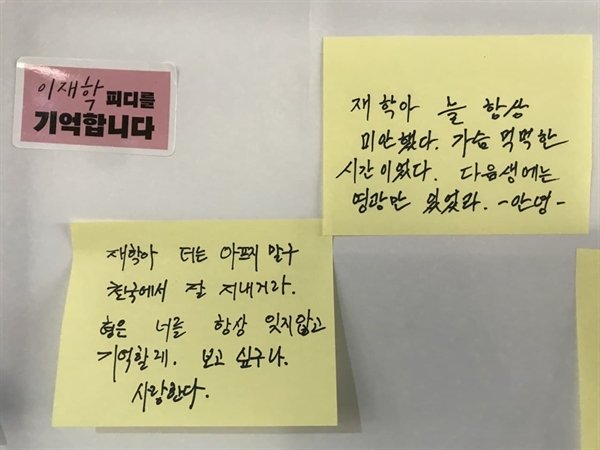 이재학 피디를
기억합니다
재학아 늘 항상
미안했다. 가슴 먹먹한
시간이었다. 다음생에는
영광만 있었라. -안녕-
재학아 더는 아프지 말구
천국에서 잘 지내거라.
형은 너를 항상 잊지않고
기억할게. 보고 싶구나.
사랑한다.